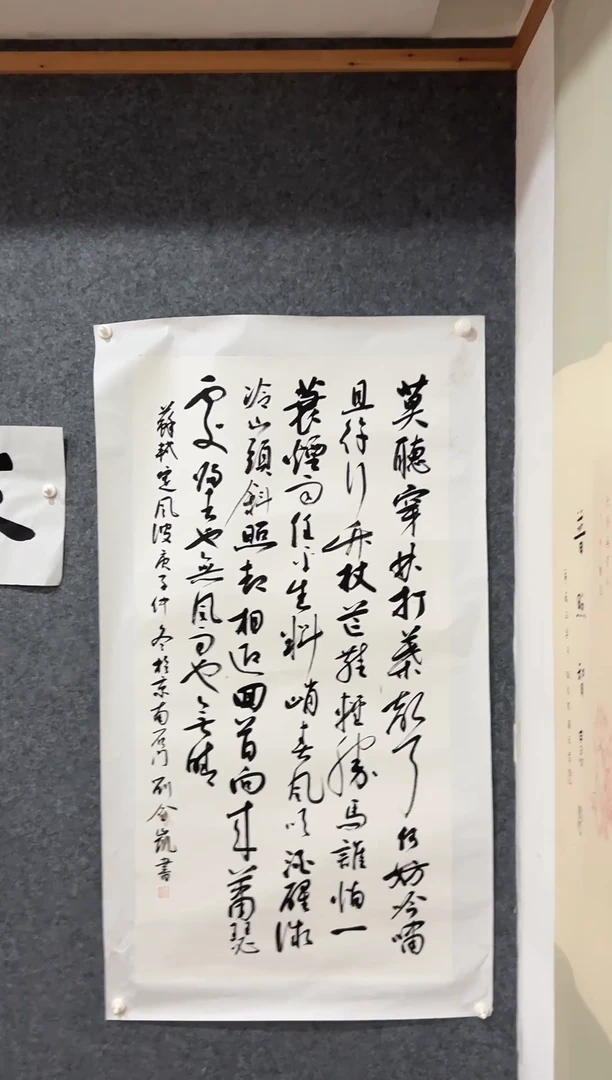 莫聽穿林打葉聲何妨吟嘯
且徐行竹杖芒鞋輕勝馬誰怕一
蓑煙雨任平生料峭春風吹酒醒微
冷山頭斜照却相迎回首向來蕭瑟
處歸去也無風雨也無晴
蘇軾定風波庚子仲冬於京南石門劉金凱書